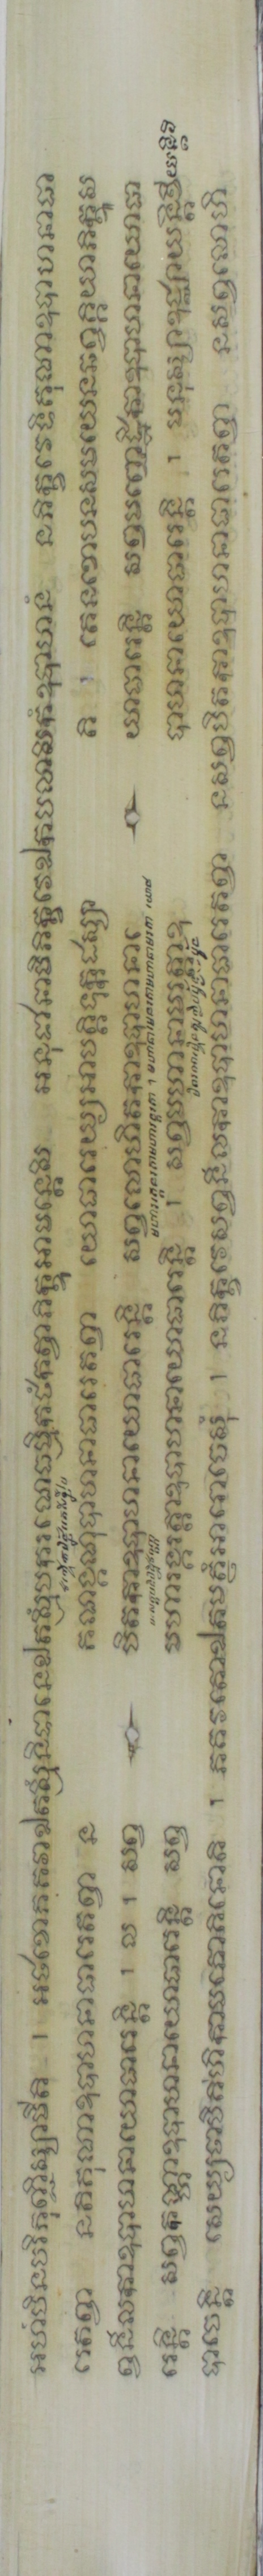 អហំបិនបរិភុញ្ជិស្សាមីតិ ។ អថខោភគវាឯតស្មឹនិទានេឯតស្មឹបករណេធម្មិកថំកត្វាភិក្ខូអាមន្តេសិ អនុជានាមិភិក្ខវេឯកបលាសិកំឧបាហនំ នភិក្ខវេទិគុណាឧបាហនាធា
រេតព្វា នតិគុណាឧបាហនាធារេតព្វា ន គណង្គណុបាហនាធារេតព្វា យោធារេយ្យអាបត្តិទុក្កដស្សា តិ ។ តេនខោបនសមយេនឆព្វគ្គិយាភិក្ខូស
ព្វនីលកាឧបាហនាយោធារេន្តិ ។ ល ។ សព្វ បិតកាឧបាហនាយោធារេន្តិ សព្វលោហិតកាឧបាហនា យោធារេន្តិ សព្វមញ្ជេដ្ឋិកាឧបាហនាយោធា
រេន្តិ សព្វកណ្ហាឧបាហនាយោធារេន្តិ សព្វ មហារង្គរត្តាឧបាហនាយោធារេន្តិ ។ សព្វមហានាមរត្តាឧ បាហនាយោធារេន្តិ ។ មនុស្សាឧជ្ឈាយន្តិខីយន្តិវិ
បាចេន្តិ សេយ្យថាបិគិហិកាមភោគិនោតិ ។ ភគវតោឯតមត្ថំអារោចេសុំ ។ នភិក្ខវេសព្វនីលកាឧបាហនាធារេតព្វា នសព្វបិតកាឧបាហនាធារេតព្វា នសព្វលោហិ